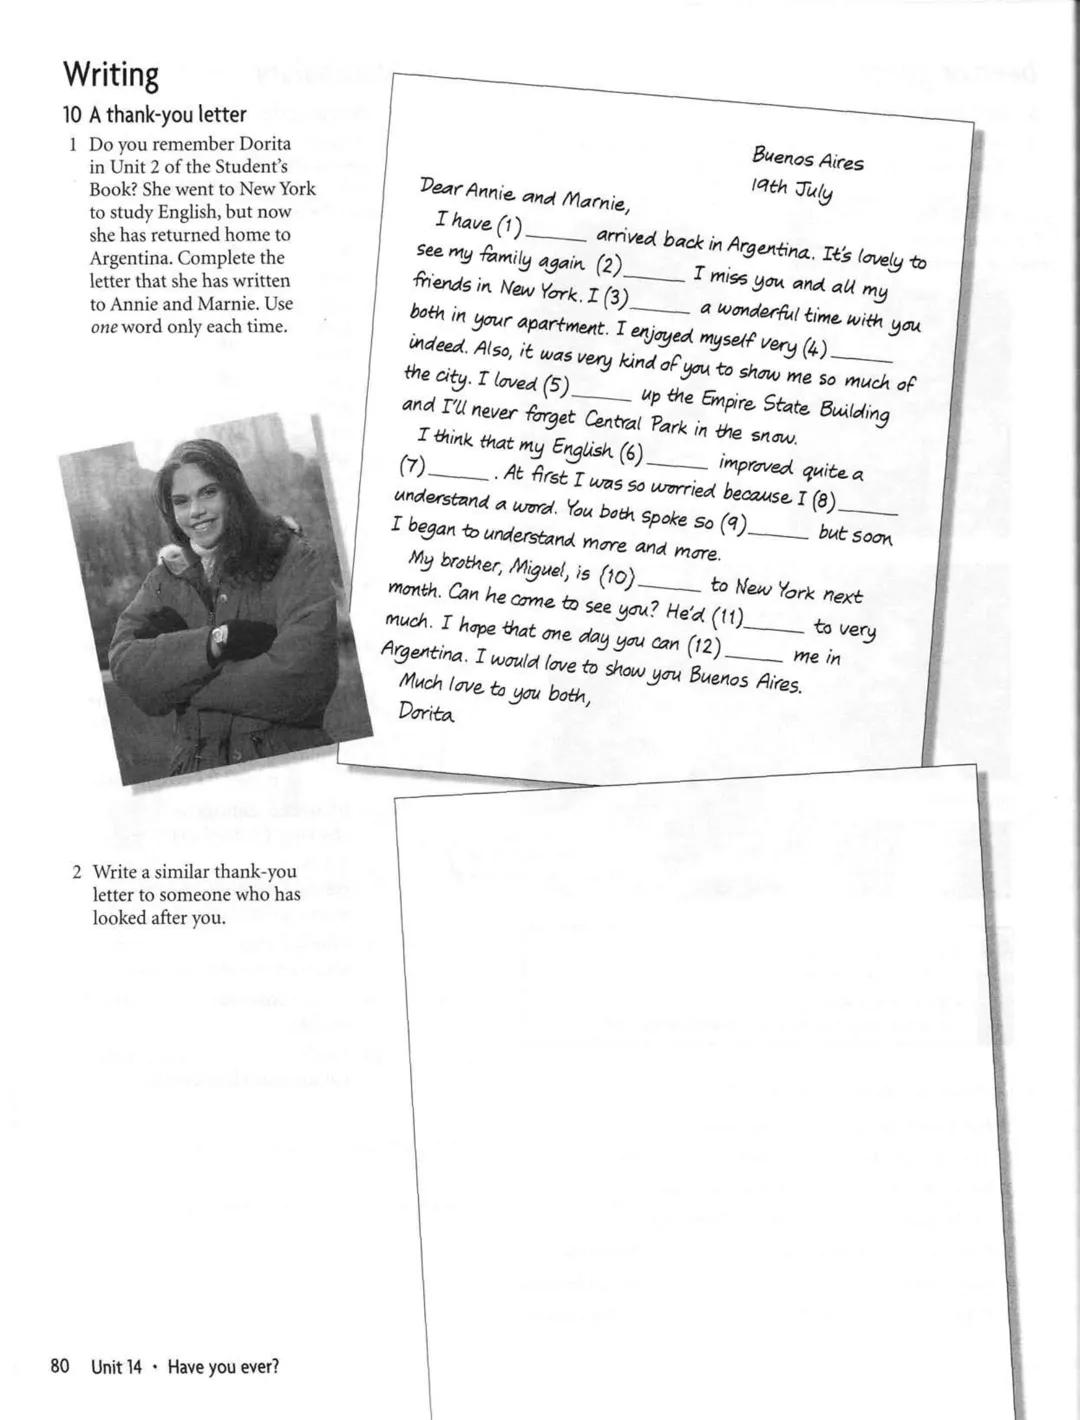 Writing
10 A thank-you letter
1 Do you remember Dorita
in Unit 2 of the Student's
Book? She went to New York
to study English, but now
she has returned home to
Argentina. Complete the
letter that she has written
to Annie and Marnie. Use
one word only each time.
Buenos Aires
19th July
Dear Annie and Marnie,
I have (1)______ arrived back in Argentina. It's lovely to
see my family again (2)______ I miss you and all my
friends in New York. I (3)______ a wonderful time with you
both in your apartment. I enjoyed myself very (4)______
indeed. Also, it was very kind of you to show me so much of
the city. I loved (5)______ up the Empire State Building
and I'll never forget Central Park in the snow.
I think that my English (6)______ improved quite a
(7)______. At first I was so worried because I (8)______
understand a word. You both spoke so (9)______ but soon
I began to understand more and more.
My brother, Miguel, is (10)______ to New York next
month. Can he come to see you? He'd (11)______ to very
much. I hope that one day you can (12)______ me in
Argentina. I would love to show you Buenos Aires.
Much love to you both,
Dorita
2 Write a similar thank-you
letter to someone who has
looked after you.
80 Unit 14 · Have you ever?